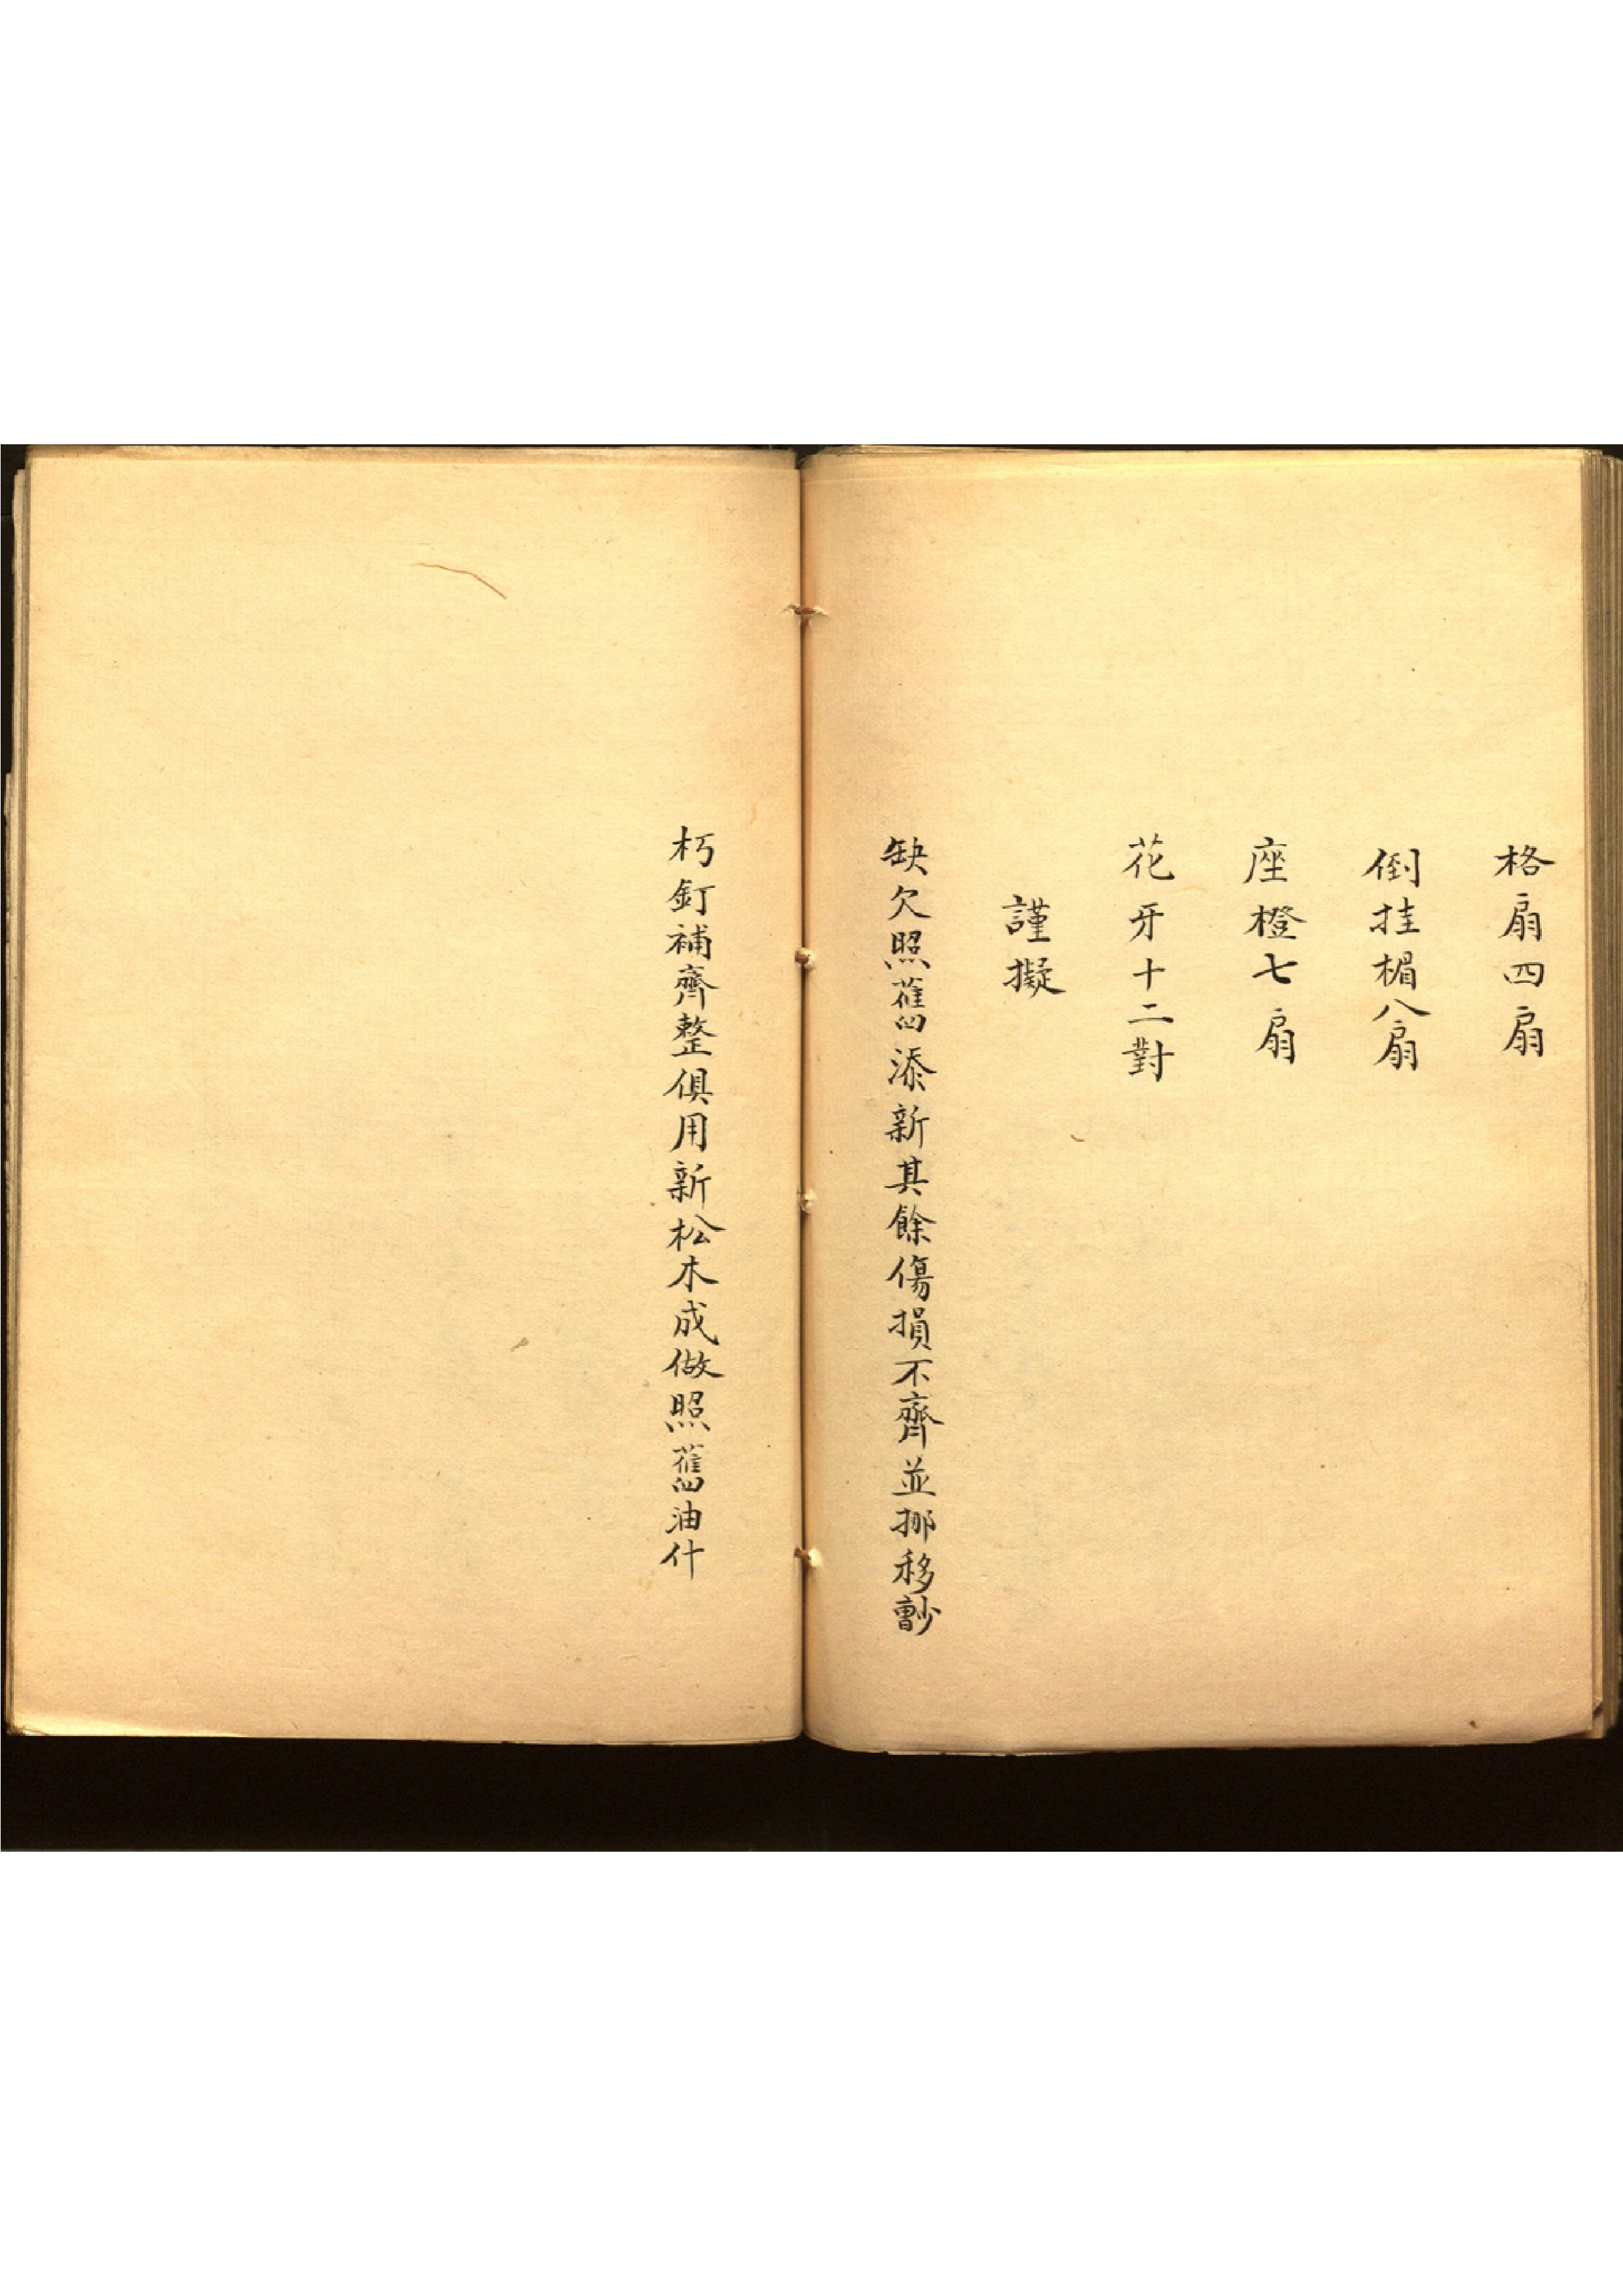 格扇四扇
倒挂楣八扇
座橙七扇
花牙十二對
謹擬
缺欠照舊添新其餘傷損不齊並挪移
朽釘補齊整俱用新松木成做照舊油什